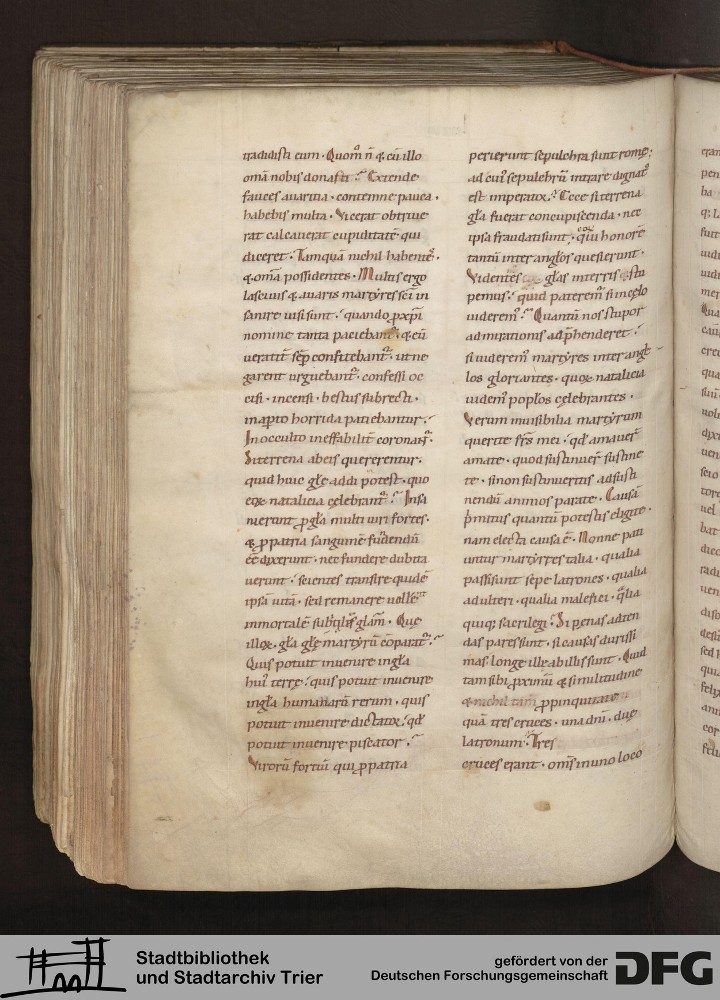 tradidisti eum. Quom̊ n̄ & cū illo
oma nobis donasti? Extende
fauces auaritia. contemne pauca.
habebis multa. Vicerat obtriue
rat calcauerat cupiditatē qui
diceret. Tamquā nichil habentes.
& om̄a possidentes. Multis ergo
lasciuis & auaris martyres sc̄i in
sanire uisi sunt. quando p xp̄i
nomine tanta paciebant̄. & cū
ueratit̄ semp confitebant̄. ut ne
garent urguebant̄. confessi oc
cisi. incensi. bestiis subrecti.
in apto horrida patiebantur.
In occulto ineffabilit̄ coronant̄.
Si terrena ab eis quererentur.
quid huic glę addi potest. quo
eoꝝ natalicia celebrant̄? Inui
nerunt p gla multi uiri fortes.
& p patria sanguinē fūdendū
ēē dixerunt. nec fundere dubita
uerunt. scientes transire quidē
ipsā uitā. sed remanere uoll̄e
immortalē glam. Que
illoꝝ. gla glę martyrū cōparat̄.
Quis potuit inuenire in gla
hui terrę. quis potuit inuenire
in gla humanarū rerum. quis
potuit inuenire dictator. qd̄
potuit inuenire piscator.
Virorū fortiū qui p patria
perierunt sepulchra sunt romę.
ad cui sepulchrū intrare dignat̄
est imperator. Ecce si terrena
gla fuerat concupiscenda. nec
ipsa fraudati sunt. qui honorē
tantū inter anglos quesierunt.
Videntes glas in terris stu
pemus. quid paterem si in cęlo
uiderem. Quantū nos stupor
admirationis adp̄henderet.
si uiderem martyres inter ange
los gloriantes. quoꝝ natalicia
uidem poplos cęlebrantes.
Verum inuisibilia martyrum
querite frs mei. qd̄ amauer̄
amate. quod sustinuer̄ sustine
te. si non sustinueritis ad susti
nendū animos parate. Causā
p̄mitus quantū potestis eligite.
nam electa causa ē. Nonne pati
untur martyres talia. qualia
passi sunt sepe latrones. qualia
adulteri. qualia malefici. qlia
quiq; sacrilegi. Si penas adten
das pares sunt. si causas durissi
mas longe ille ab illis sunt. Quid
tam sibi p ximū & similitudine
& nichil tam p pinquitate
quā tres cruces. una dn̄i. duę
latronum. Tres
cruces erant. oms in uno loco
Stadtbibliothek
und Stadtarchiv Trier
gefördert von der
Deutschen Forschungsgemeinschaft
DFG